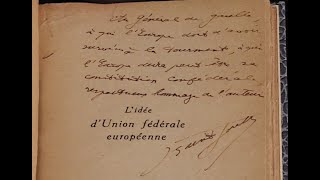 Au Général de Gaulle,
à qui l'Europe doit d'avoir
survécu à la tourmente, à qui
l'Europe devra peut-être sa
constitution confédérale,
respectueux hommage de l'auteur
L'idée
d'Union fédérale
européenne